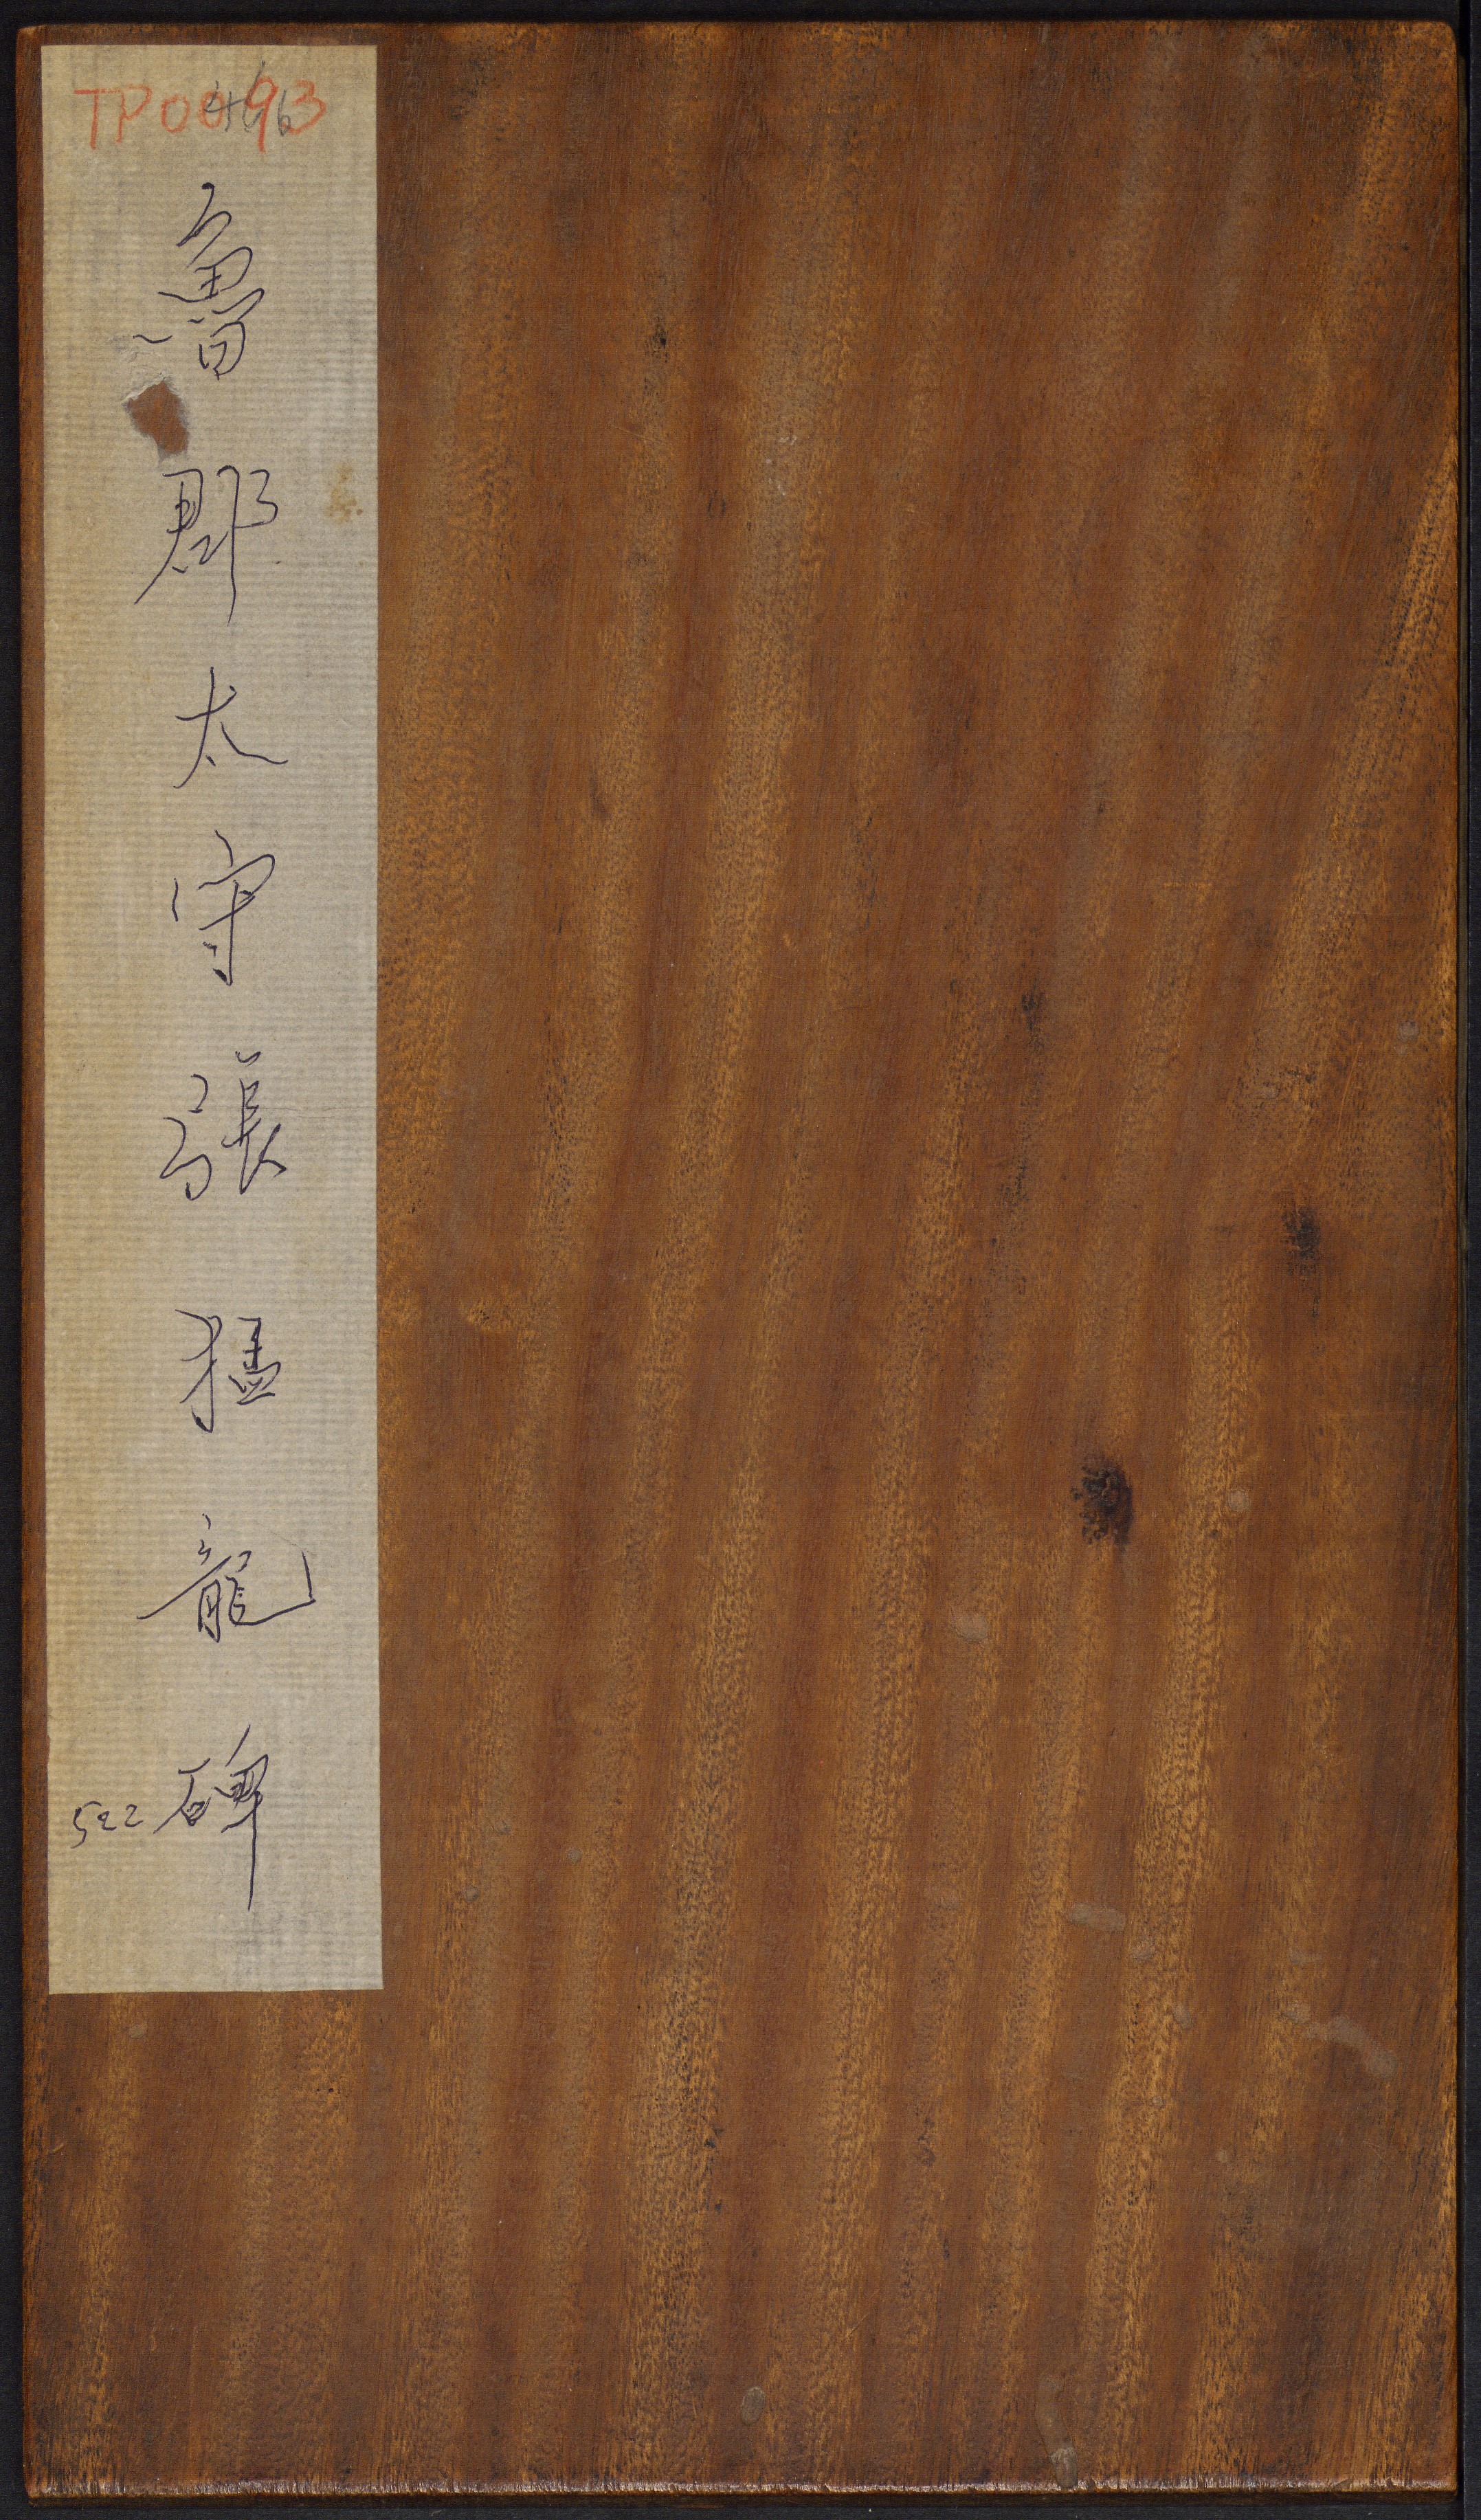 TP00493
魯郡太守張猛龍碑
522